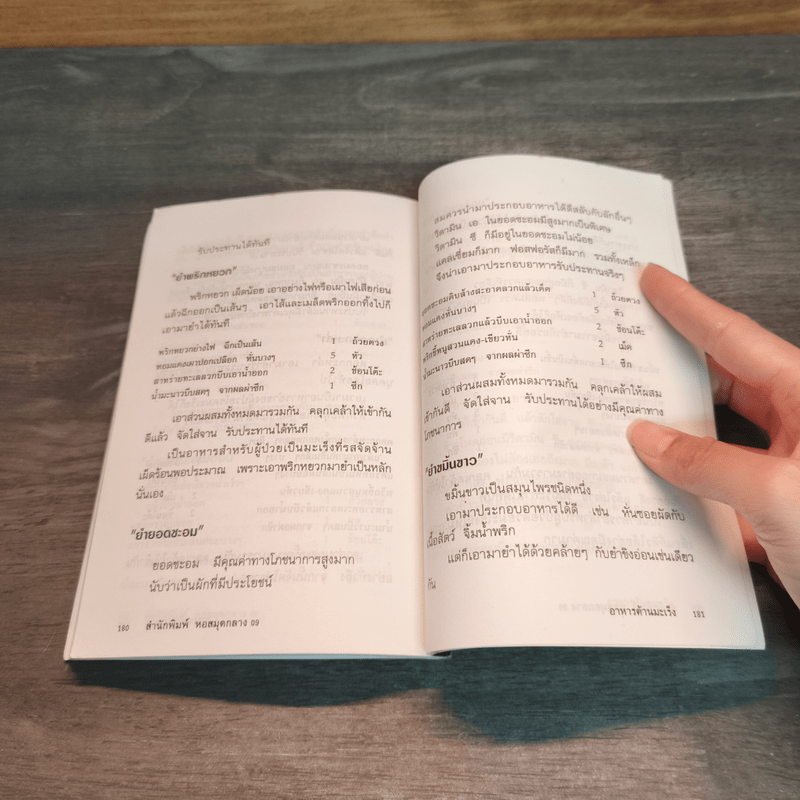 รับประทานได้ทันที
"ยำพริกหยวก"
พริกหยวก เผ็ดน้อย เอาอย่างไฟหรือเผาไฟเสียก่อน
แล้วฉีกออกเป็นเส้นๆ เอาไส้และเมล็ดพริกออกทิ้งไปก็
เอามายำได้ทันที
พริกหยวกย่างไฟ ฉีกเป็นเส้น 1 ถ้วยตวง
หอมแดงเผาปอกเปลือก หั่นบางๆ 5 หัว
สาหร่ายทะเลลวกบีบเอาน้ำออก 2 ช้อนโต๊ะ
น้ำมะนาวบีบสดๆ จากผลผ่าซีก 1 ซีก
เอาส่วนผสมทั้งหมดมารวมกัน คลุกเคล้าให้เข้ากัน
ดีแล้ว จัดใส่จาน รับประทานได้ทันที
เป็นอาหารสำหรับผู้ป่วยเป็นมะเร็งที่รสจัดจ้าน
เผ็ดร้อนพอประมาณ เพราะเอาพริกหยวกมายำเป็นหลัก
นั่นเอง
"ยำยอดชะอม"
ยอดชะอม มีคุณค่าทางโภชนาการสูงมาก
นับว่าเป็นผักที่มีประโยชน์
180 สำนักพิมพ์ หอสมุดกลาง 09
สมควรนำมาประกอบอาหารได้ดีสลับกับผักอื่นๆ
วิตามิน เอ ในยอดชะอมมีสูงมากเป็นพิเศษ
วิตามิน ซี ก็มีอยู่ในยอดชะอมไม่น้อย
แคลเซี่ยมก็มาก ฟอสฟอรัสก็มีมาก รวมทั้งเหล็ก
จึงน่าเอามาประกอบอาหารรับประทานจริงๆ
ยอดชะอมดิบล้างสะอาดลวกแล้วเด็ด 1 ถ้วยตวง
หอมแดงหั่นบางๆ 5 หัว
สาหร่ายทะเลลวกแล้วบีบเอาน้ำออก 2 ช้อนโต๊ะ
พริกขี้หนูสวนแดง-เขียวหั่น 2 เม็ด
น้ำมะนาวบีบสดๆ จากผลผ่าซีก 1 ซีก
เอาส่วนผสมทั้งหมดมารวมกัน คลุกเคล้าให้ผสม
เข้ากันดี จัดใส่จาน รับประทานได้อย่างมีคุณค่าทาง
โภชนาการ
"ยำขมิ้นขาว"
ขมิ้นขาวเป็นสมุนไพรชนิดหนึ่ง
เอามาประกอบอาหารได้ดี เช่น หั่นซอยผัดกับ
เนื้อสัตว์ จิ้มน้ำพริก
แต่ก็เอามายำได้ด้วยคล้ายๆ กับยำขิงอ่อนเช่นเดียว
กัน
อาหารต้านมะเร็ง 181